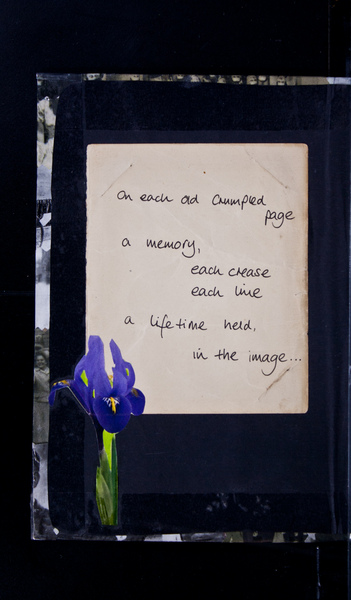 On each old crumpled
page
a memory,
each crease
each line
a lifetime held,
in the image...